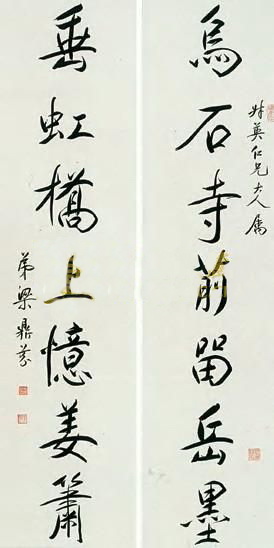 烏石寺前留岳墨
垂虹橋上憶姜簫
仁兄大人属
弟梁鼎芬